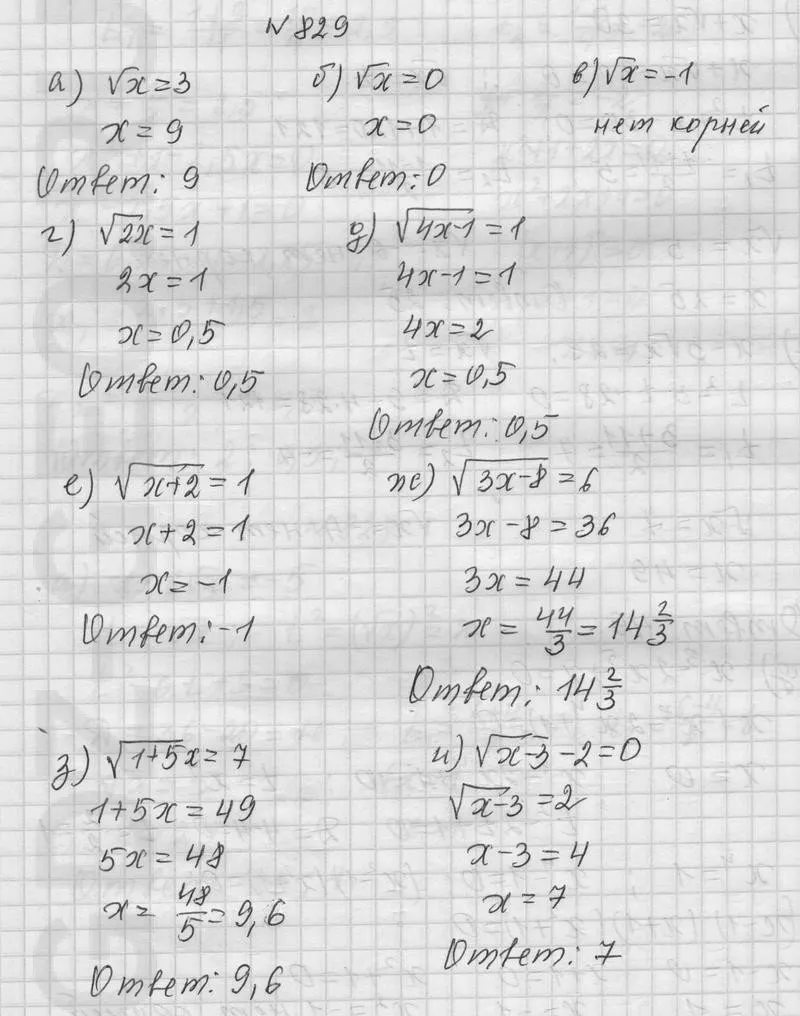 №829
а) √x = 3 б) √x = 0 в) √x = -1
x = 9 x = 0 нет корней
Ответ: 9 Ответ: 0
г) √2x = 1 д) √4x-1 = 1
2x = 1 4x-1 = 1
x = 0,5 4x = 2
Ответ: 0,5 x = 0,5
Ответ: 0,5
е) √x+2 = 1 ж) √3x-8 = 6
x+2 = 1 3x-8 = 36
x = -1 3x = 44
Ответ: -1 x = 44/3 = 14 2/3
Ответ: 14 2/3
з) √1+5x = 7 и) √x-3 - 2 = 0
1+5x = 49 √x-3 = 2
5x = 48 x-3 = 4
x = 48/5 = 9,6 x = 7
Ответ: 9,6 Ответ: 7